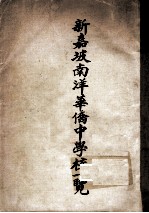 新嘉坡南洋華僑中學校一覽